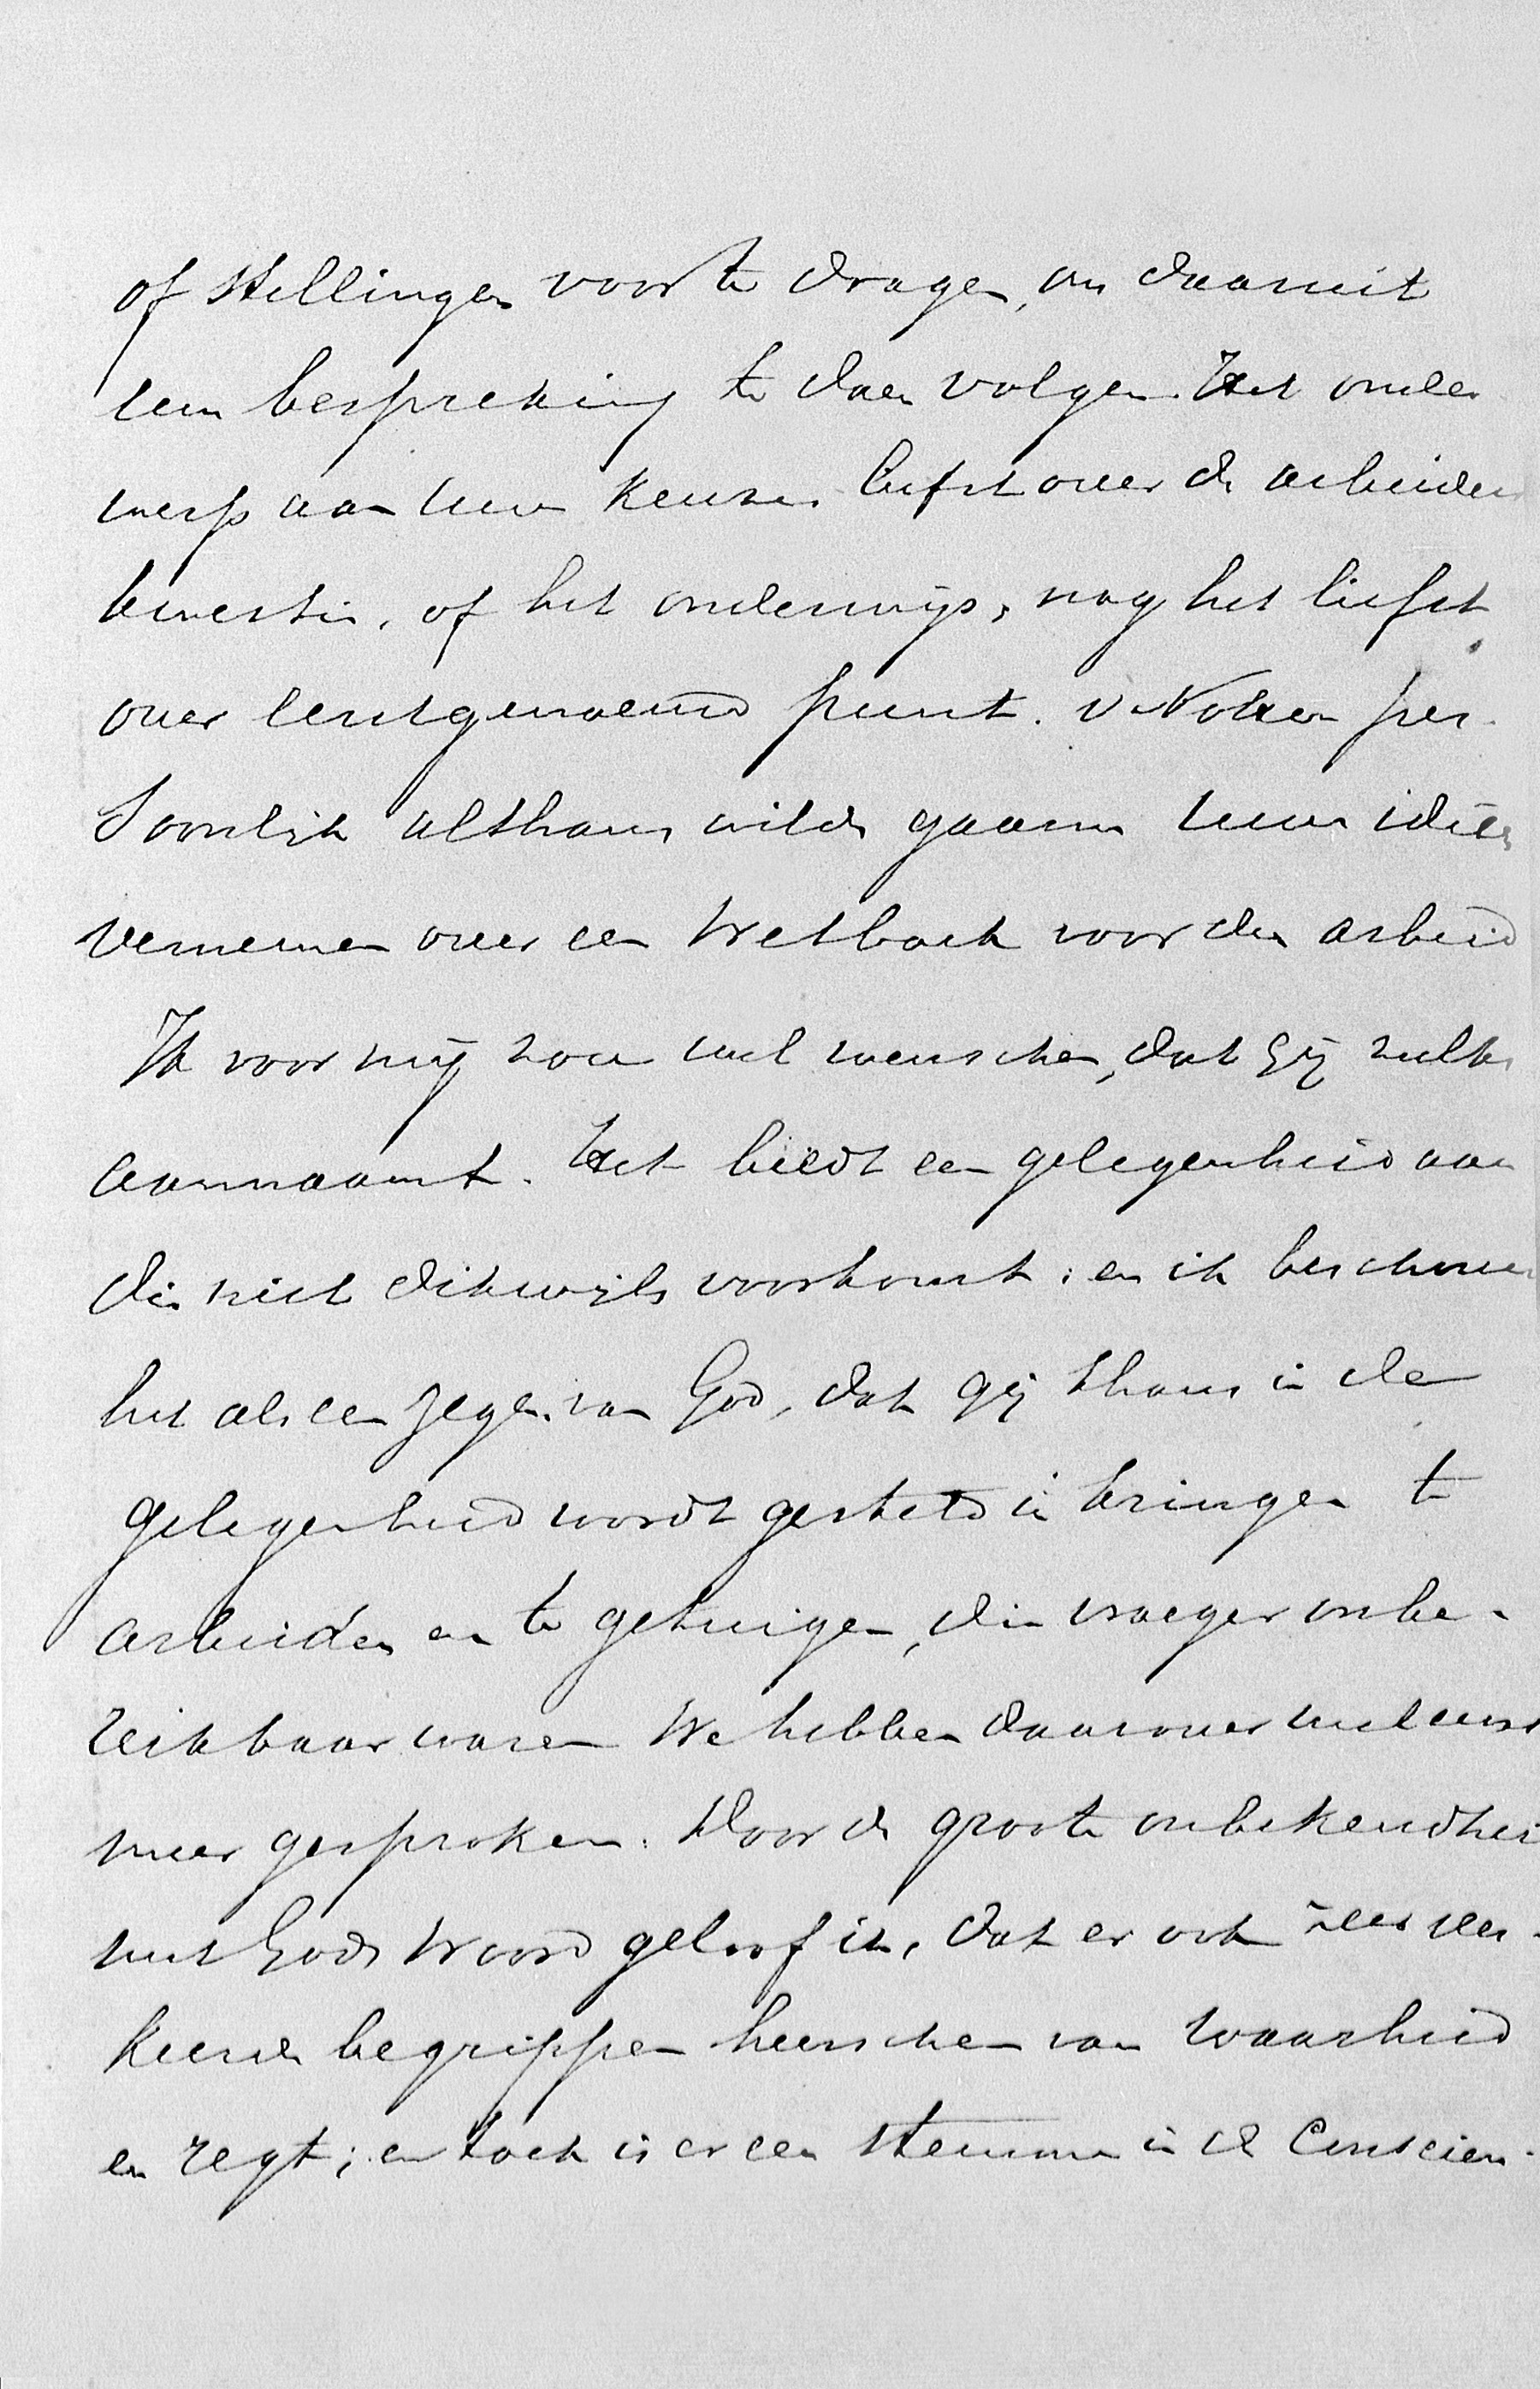 of stellingen voor te dragen, om daaruit
een bespreking te doen volgen. Het onder
werp aan uw keuze. Liefst over de arbeiders
kwestie, of het onderwijs, nog het liefst
over eerstgenoemd punt. v Nolken per-
soonlijk althans wilde gaarne uwe ideën
vernemen over een Wetboek voor den arbeid
Ik voor mij zou wel wenschen, dat gij zulks
aannaamt. Het biedt een gelegenheid aan
die niet dikwijls voorkomt; en ik beschouw
het als een zegen van God, dat gij thans in de
gelegenheid wordt gesteld in kringen te
arbeiden en te getuigen, die vroeger onbe-
reikbaar waren We hebben daarover wel eens
meer gesproken. Door de groote onbekendhei
met Gods Woord geloof ik, dat er ook zeer ver-
keerde begrippen heerschen van waarheid
en regt; en toch is er een stemme in de Conscien-